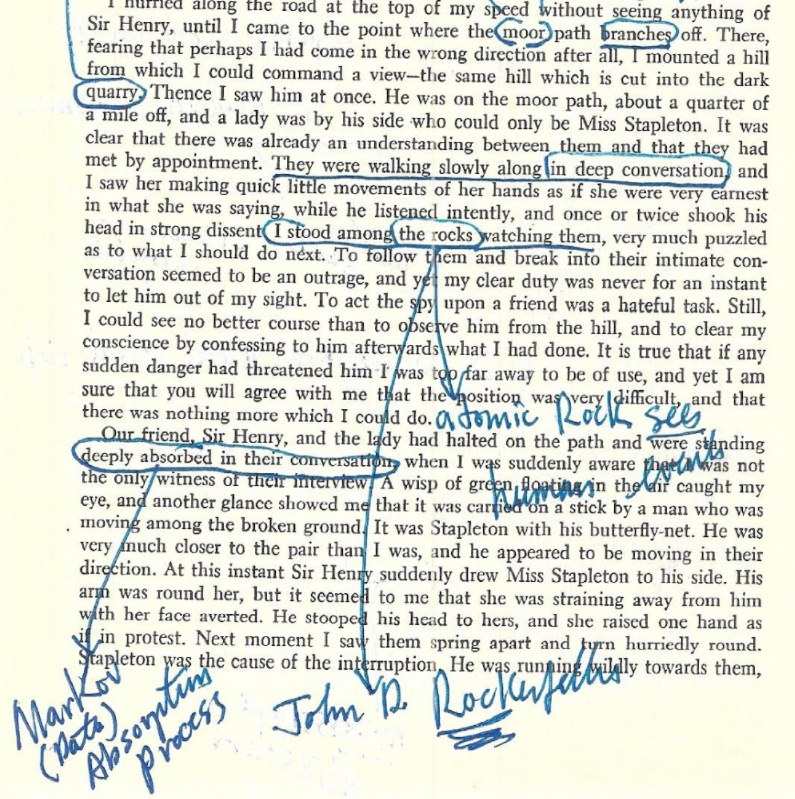 I hurried along the road at the top of my speed without seeing anything of
Sir Henry, until I came to the point where the moor path branches off. There,
fearing that perhaps I had come in the wrong direction after all, I mounted a hill
from which I could command a view—the same hill which is cut into the dark
quarry. Thence I saw him at once. He was on the moor path, about a quarter of
a mile off, and a lady was by his side who could only be Miss Stapleton. It was
clear that there was already an understanding between them and that they had
met by appointment. They were walking slowly along in deep conversation, and
I saw her making quick little movements of her hands as if she were very earnest
in what she was saying, while he listened intently, and once or twice shook his
head in strong dissent. I stood among the rocks watching them, very much puzzled
as to what I should do next. To follow them and break into their intimate con-
versation seemed to be an outrage, and yet my clear duty was never for an instant
to let him out of my sight. To act the spy upon a friend was a hateful task. Still,
I could see no better course than to observe him from the hill, and to clear my
conscience by confessing to him afterwards what I had done. It is true that if any
sudden danger had threatened him I was too far away to be of use, and yet I am
sure that you will agree with me that the position was very difficult, and that
there was nothing more which I could do.
atomic Rock sees
human events
Our friend, Sir Henry, and the lady had halted on the path and were standing
deeply absorbed in their conversation, when I was suddenly aware that I was not
the only witness of their interview. A wisp of green floating in the air caught my
eye, and another glance showed me that it was carried on a stick by a man who was
moving among the broken ground. It was Stapleton with his butterfly-net. He was
very much closer to the pair than I was, and he appeared to be moving in their
direction. At this instant Sir Henry suddenly drew Miss Stapleton to his side. His
arm was round her, but it seemed to me that she was straining away from him
with her face averted. He stooped his head to hers, and she raised one hand as
if in protest. Next moment I saw them spring apart and turn hurriedly round.
Stapleton was the cause of the interruption. He was running wildly towards them,
Markov
(Data)
Absorption
process
John D.